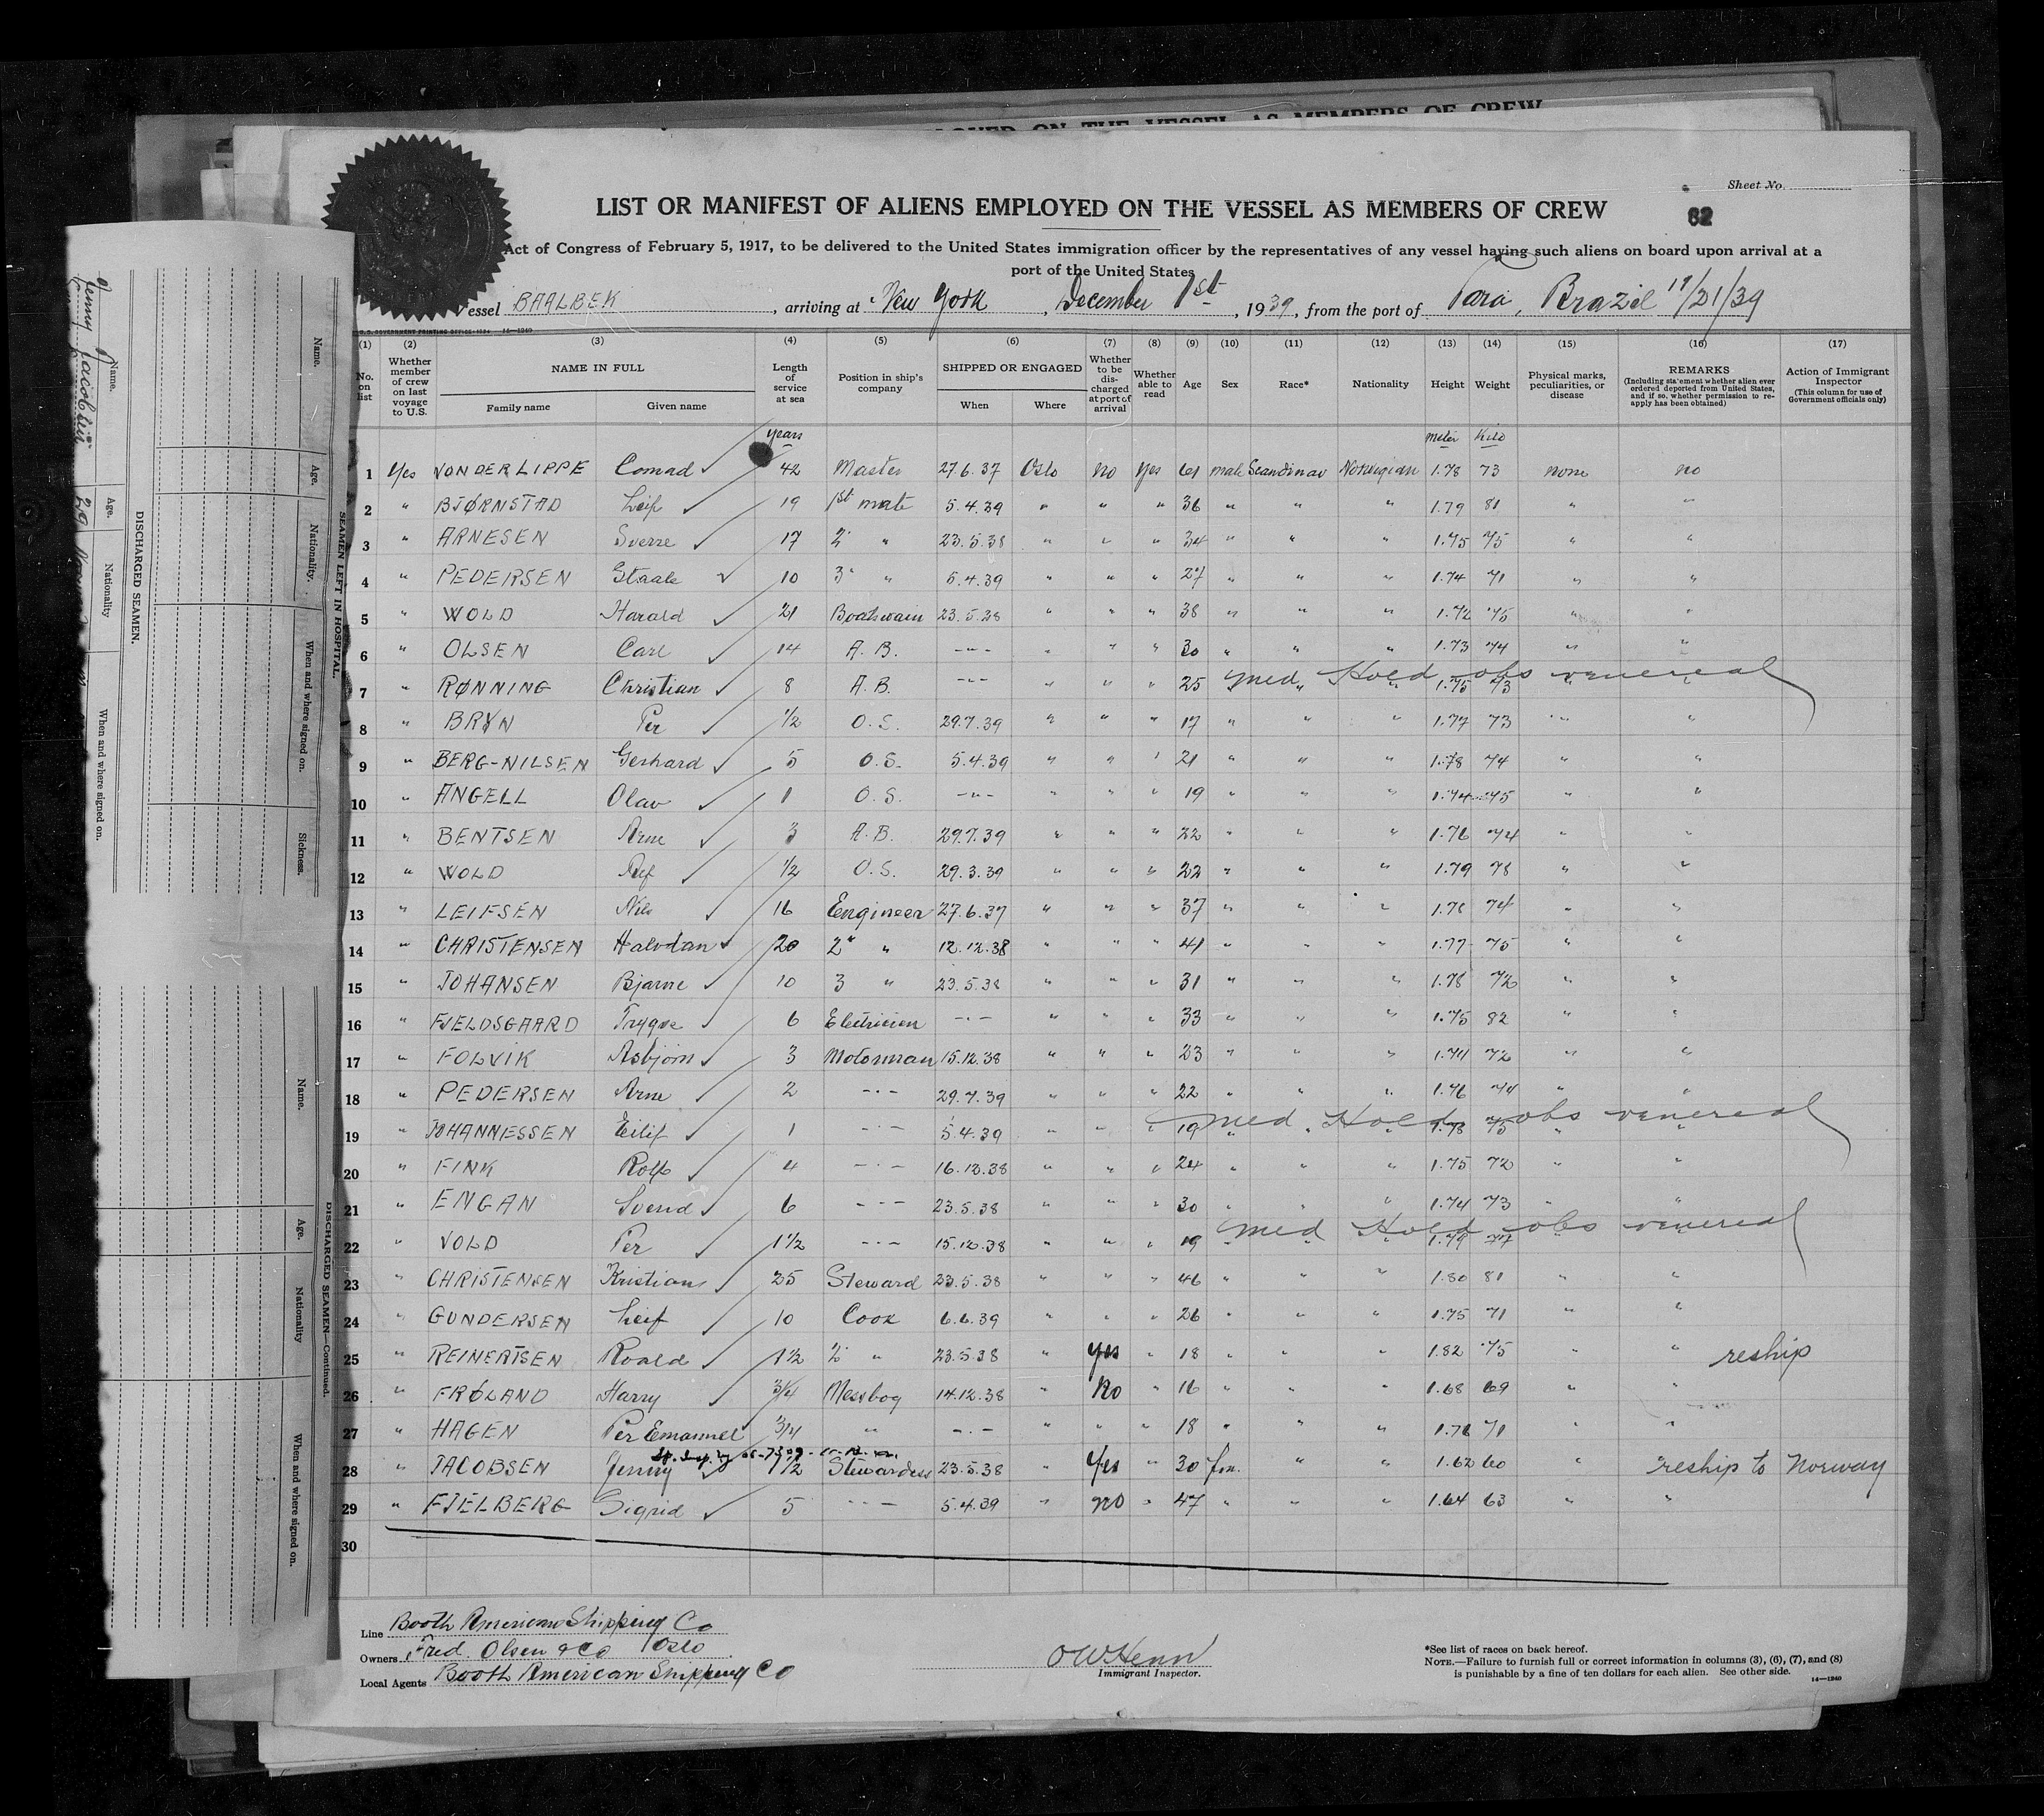 OYED ON THE VESSEL AS MEMBERS OF CREW
Sheet No.
LIST OR MANIFEST OF ALIENS EMPLOYED ON THE VESSEL AS MEMBERS OF CREW
82
Act of Congress of February 5, 1917, to be delivered to the United States immigration officer by the representatives of any vessel having such aliens on board upon arrival at a
port of the United States
Vessel BAALBEK, arriving at New York, December 1st, 1939, from the port of Para, Brazil 11/21/39
U.S. GOVERNMENT PRINTING OFFICE: 1934 14—1240
(1) (2) (3) (4) (5) (6) (7) (8) (9) (10) (11) (12) (13) (14) (15) (16) (17)
No. on list
Whether member of crew on last voyage to U.S.
NAME IN FULL
Family name
Given name
Length of service at sea
Position in ship's company
SHIPPED OR ENGAGED
When
Where
Whether to be discharged at port of arrival
Whether able to read
Age
Sex
Race*
Nationality
Height
Weight
Physical marks, peculiarities, or disease
REMARKS
(Including statement whether alien ever ordered deported from United States, and if so, whether permission to reapply has been obtained)
Action of Immigrant Inspector
(This column for use of Government officials only)
years meter Kilo
1 Yes VON DER LIPPE Conrad 42 Master 27.6.37 Oslo no Yes 61 male Scandinav Norwegian 1.78 73 none no
2 " BJØRNSTAD Leif 19 1st mate 5.4.39 " " " 36 " " " 1.79 81 " "
3 " ARNESEN Sverre 17 2" " 23.5.38 " " " 34 " " " 1.75 75 " "
4 " PEDERSEN Staale 10 3" " 5.4.39 " " " 27 " " " 1.74 71 " "
5 " WOLD Harald 21 Boatswain 23.5.38 " " " 38 " " " 1.72 75 " "
6 " OLSEN Carl 14 A.B. -"- " " " 30 " " " 1.73 74 " "
7 " RØNNING Christian 8 A.B. -"- " " " 25 " " " 1.75 73 " "
med Hold obs venereal
8 " BRYN Per 1/2 O.S. 29.7.39 " " " 17 " " " 1.77 73 " "
9 " BERG-NILSEN Gerhard 5 O.S. 5.4.39 " " " 21 " " " 1.78 74 " "
10 " ANGELL Olav 1 O.S. -"- " " " 19 " " " 1.74 75 " "
11 " BENTSEN Arne 3 A.B. 29.7.39 " " " 22 " " " 1.76 74 " "
12 " WOLD 1/2 O.S. 29.3.39 " " " 22 " " " 1.79 78 " "
13 " LEIFSEN Nils 16 Engineer 27.6.37 " " " 37 " " " 1.78 74 " "
14 " CHRISTENSEN Halvdan 20 2" " 12.12.38 " " " 41 " " " 1.77 75 " "
15 " JOHANSEN Bjarne 10 3 " 23.5.38 " " " 31 " " " 1.78 72 " "
16 " FJELDSGAARD Trygve 6 Electrician -"- " " " 33 " " " 1.75 82 " "
17 " FOLVIK Asbjörn 3 Motorman 15.12.38 " " " 23 " " " 1.74 72 " "
18 " PEDERSEN Arne 2 -"- 29.7.39 " " " 22 " " " 1.76 74 " "
19 " JOHANNESSEN Eilif 1 -"- 5.4.39 " " " 19 " " " 1.78 75 " "
med Hold obs venereal
20 " FINK Rolf 4 -"- 16.12.38 " " " 24 " " " 1.75 72 " "
21 " ENGAN Svend 6 -"- 23.5.38 " " " 30 " " " 1.74 73 " "
22 " VOLD Per 1 1/2 -"- 15.12.38 " " " 19 " " " 1.79 77 " "
med Hold obs venereal
23 " CHRISTENSEN Kristian 25 Steward 23.5.38 " " " 46 " " " 1.80 81 " "
24 " GUNDERSEN Leif 10 Cook 6.6.39 " " " 26 " " " 1.75 71 " "
25 " REINERTSEN Roald 1 1/2 2" " 23.5.38 " Yes " 18 " " " 1.82 75 " " reship
26 " FRØLAND Harry 3/4 Messboy 14.12.38 " No " 16 " " " 1.68 69 " "
27 " HAGEN Per Emanuel 3/4 " -"- " " " 18 " " " 1.76 71 " "
28 " JACOBSEN Jenny 1 1/2 Stewardess 23.5.38 " Yes " 30 fem. " " 1.62 60 " " reship to Norway
29 " FJELBERG Sigrid 5 -"- 5.4.39 " no " 47 " " " 1.64 63 " "
30
Line Booth American Shipping Co
Owners Fred. Olsen & Co Oslo
Local Agents Booth American Shipping Co
OW Henn
Immigrant Inspector.
*See list of races on back hereof.
NOTE.—Failure to furnish full or correct information in columns (3), (6), (7), and (8)
is punishable by a fine of ten dollars for each alien. See other side.
14—1240
SEAMEN LEFT IN HOSPITAL.
Name. Age. Nationality. When and where signed on. Sickness.
DISCHARGED SEAMEN.
Name. Age. Nationality When and where signed on.
Jenny Jacobsen 29
DISCHARGED SEAMEN—Continued.
Name. Age. Nationality When and where signed on.